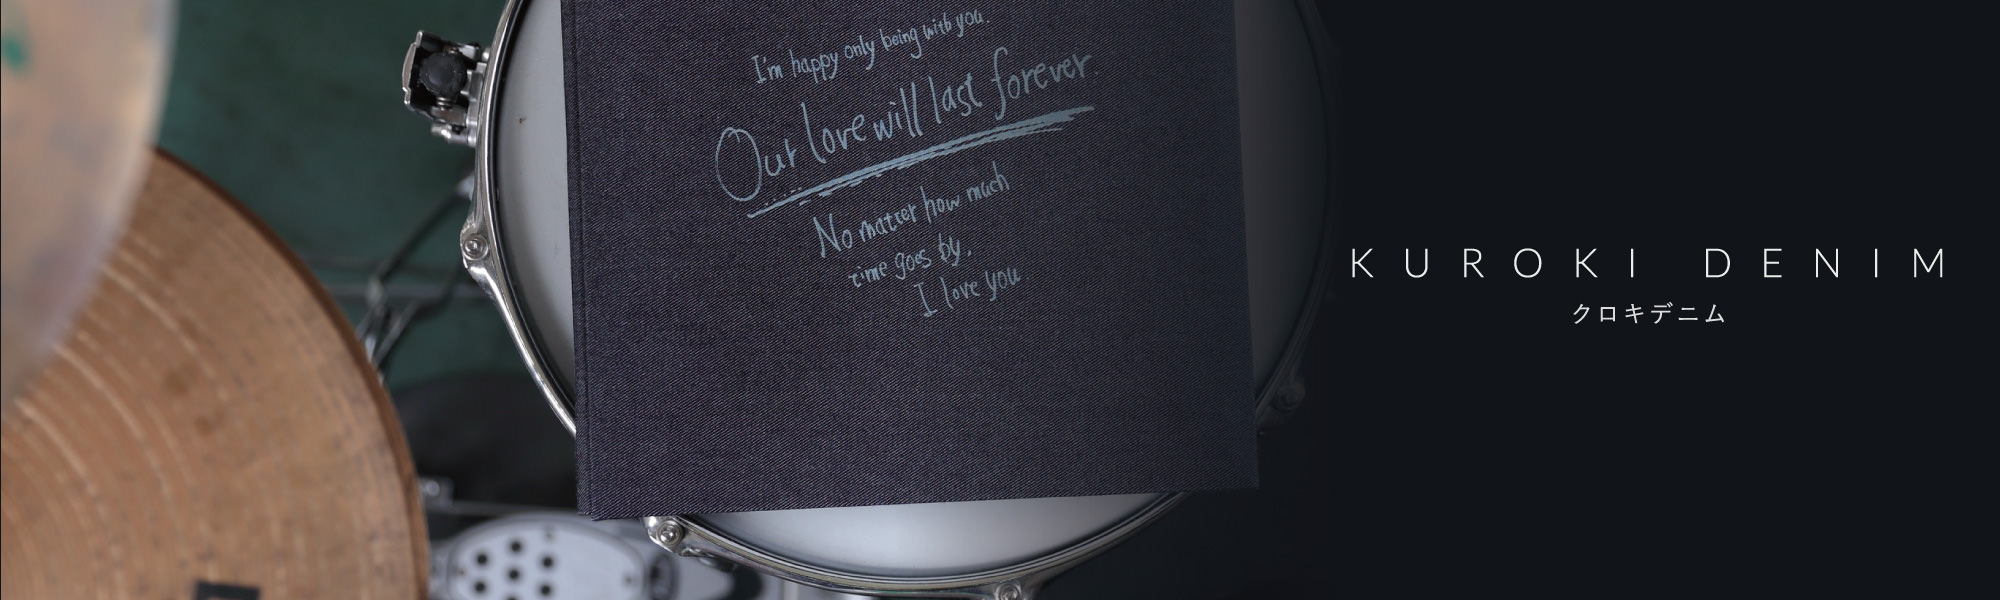 I'm happy only being with you.
Our love will last forever.
No matter how much
time goes by.
I love you
KUROKI DENIM
クロキデニム